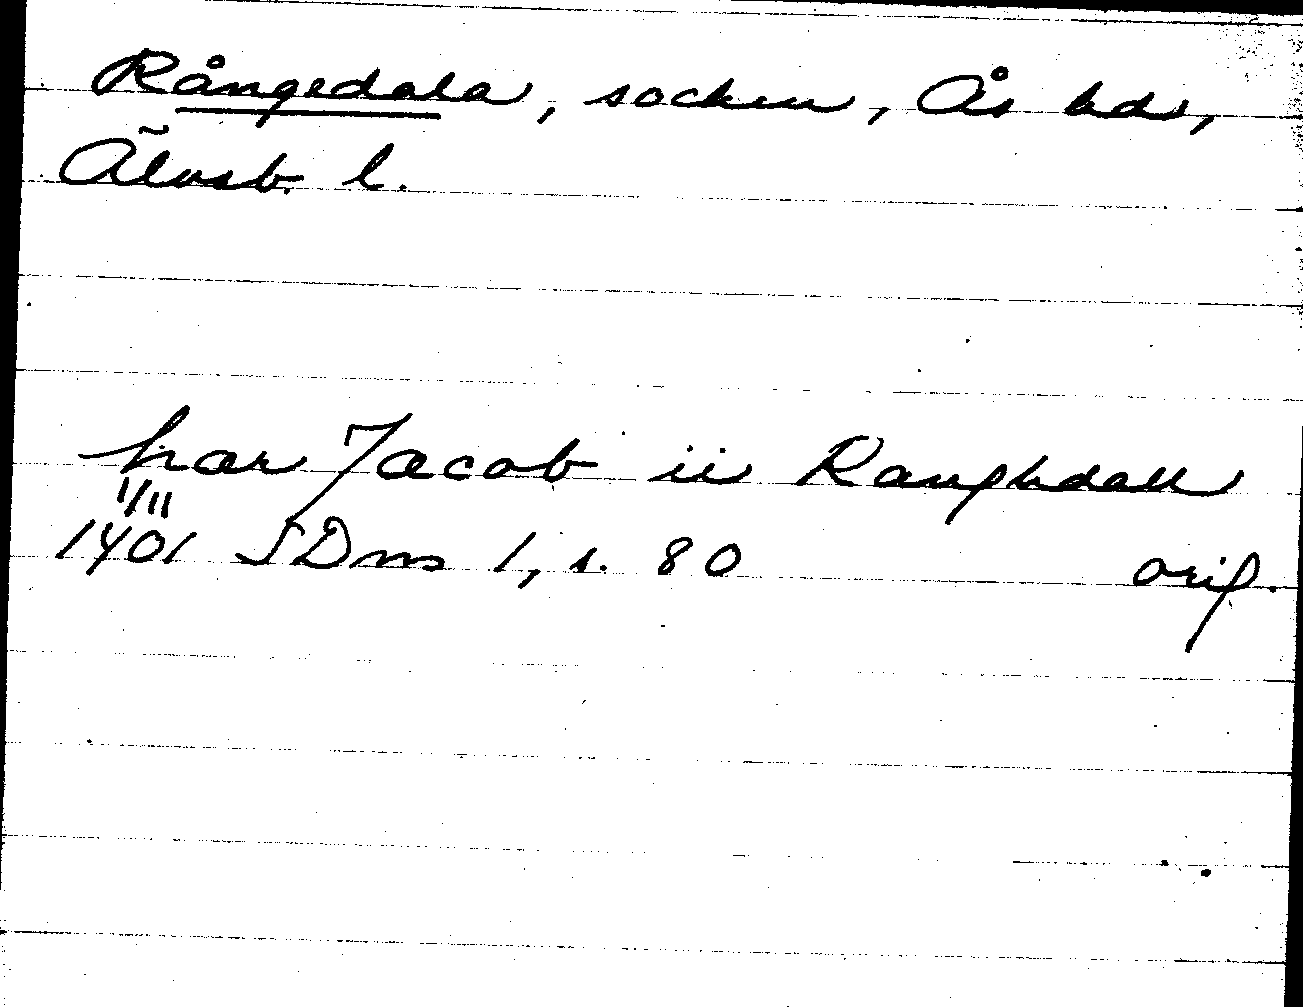 Rångedala, socken, Ås hd,
Älvsb. l.
har Jacob ii Ranghdall
1/11
1401 SDns 1, s. 80 orig.